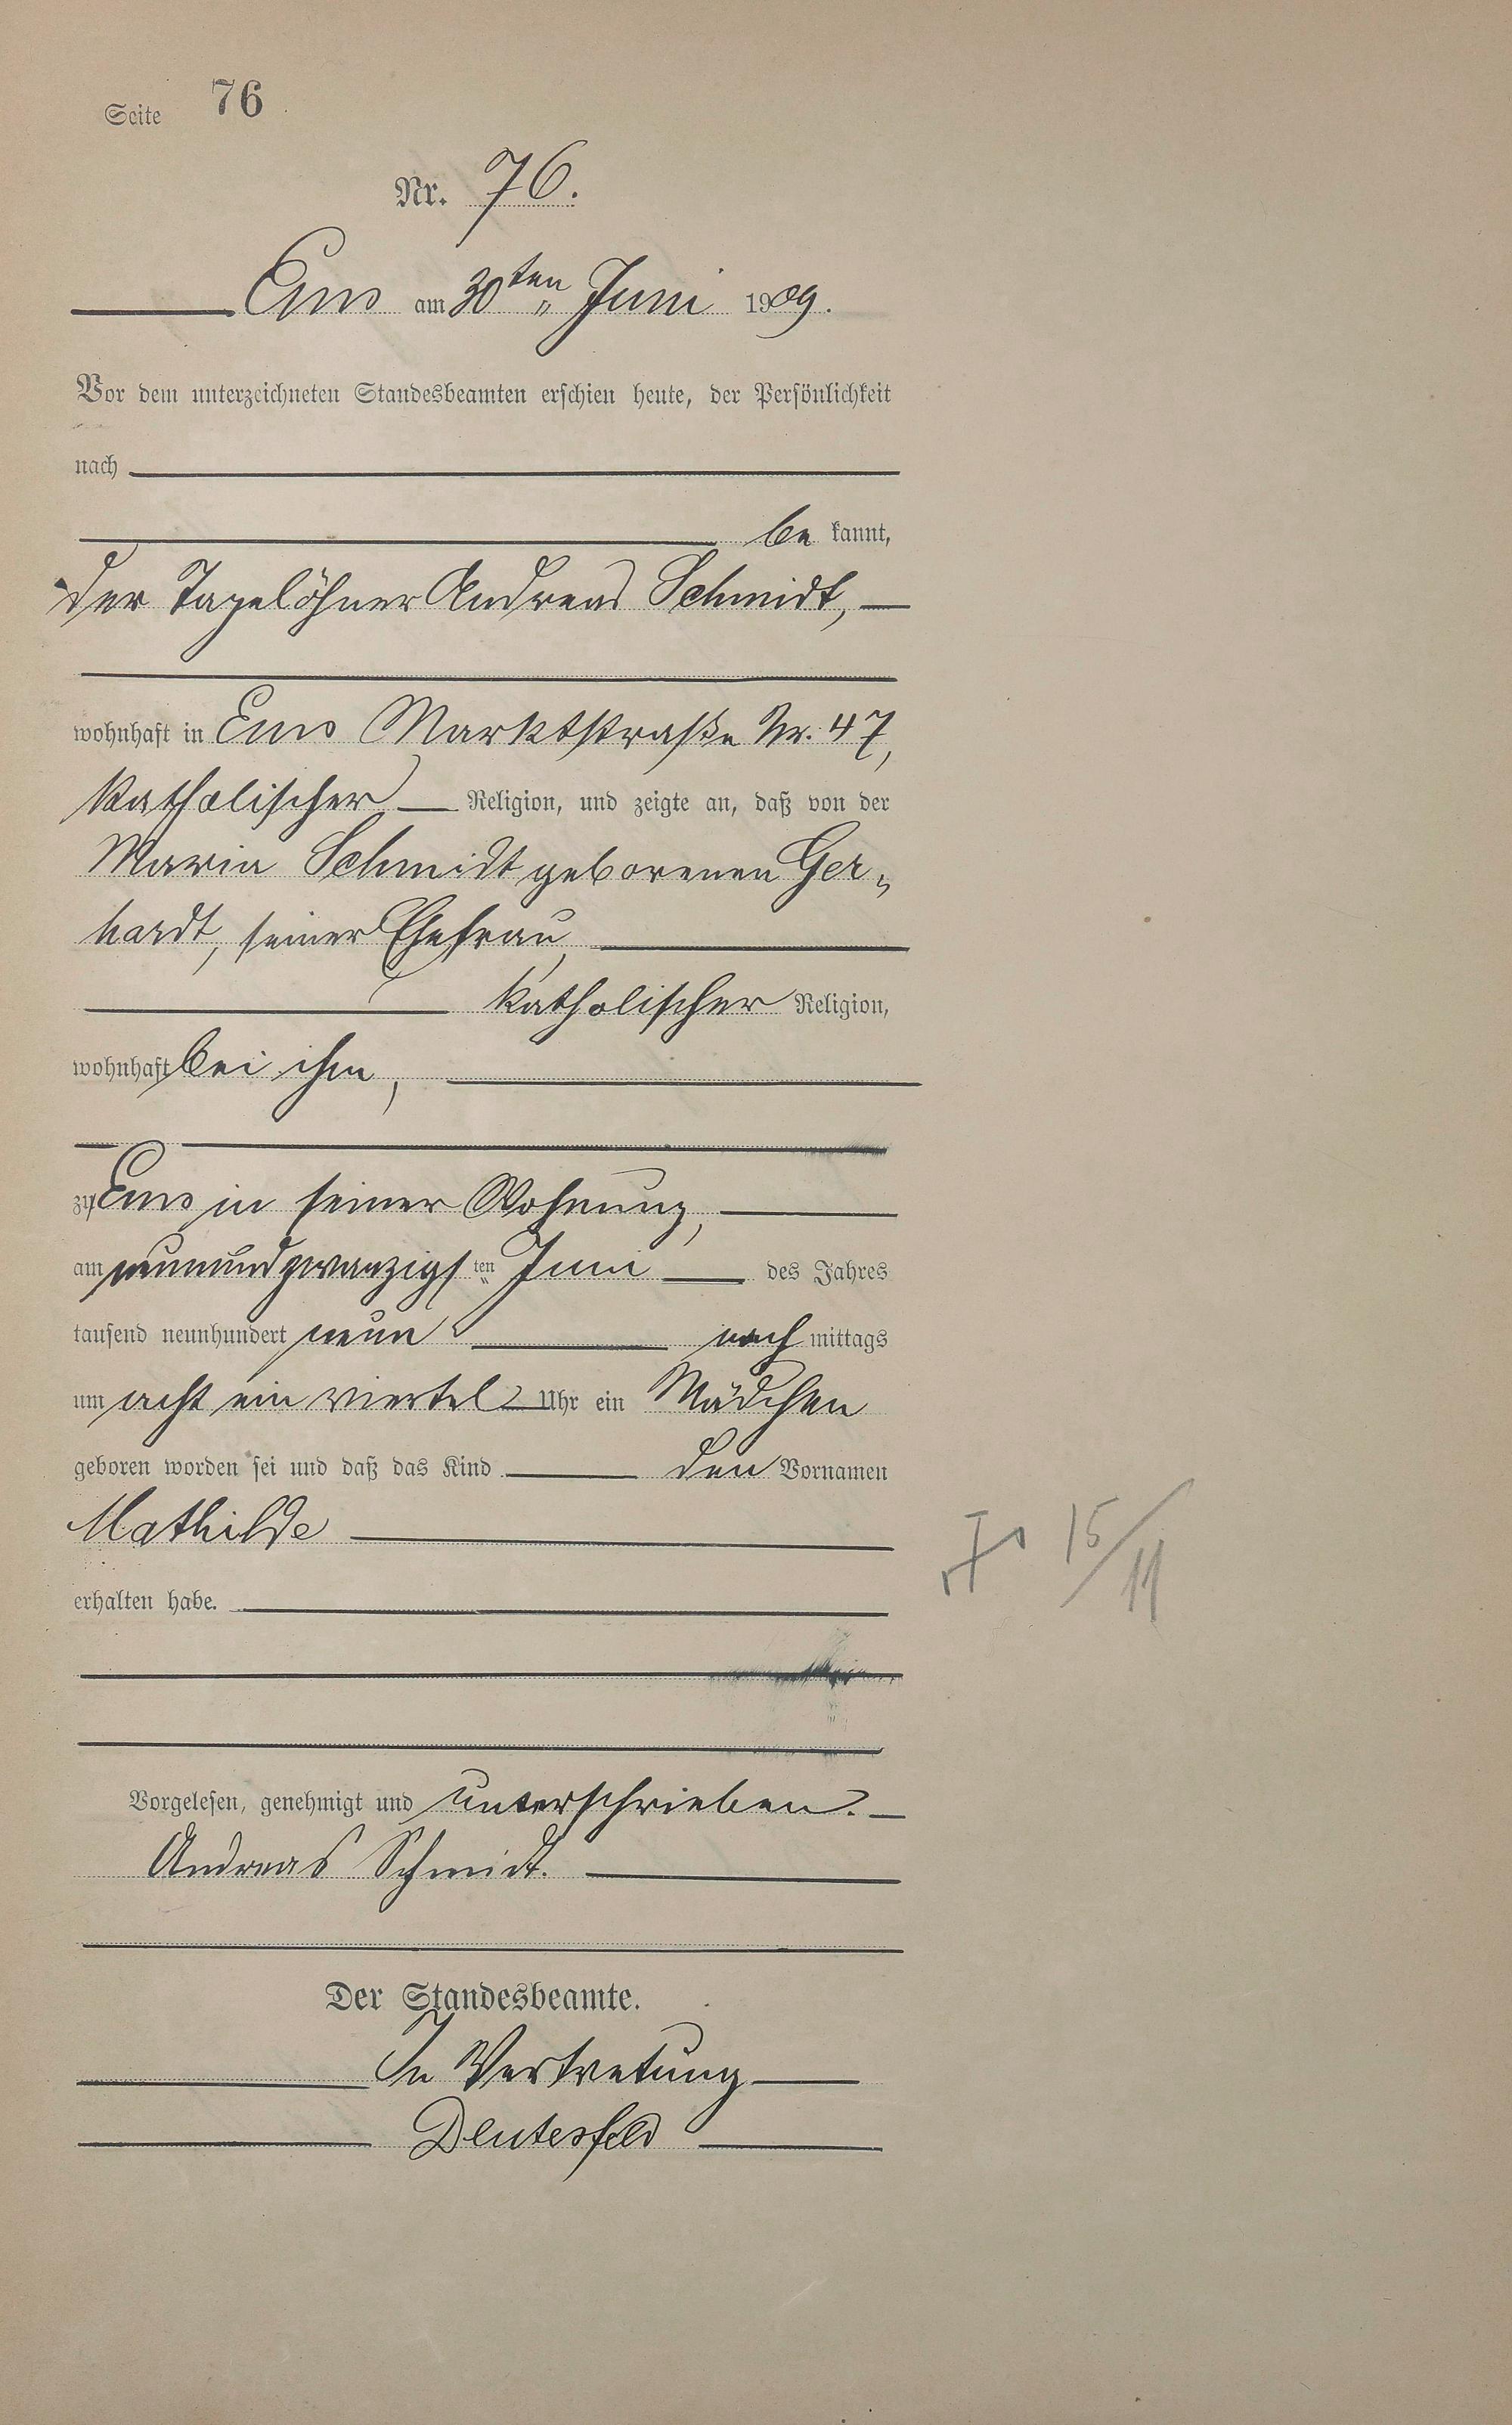 Seite 76
Nr. 76.
Ems am 30ten Juni 1909.
Vor dem unterzeichneten Standesbeamten erschien heute, der Persönlichkeit
nach
be kannt,
der Tagelöhner Andreas Schmidt,
wohnhaft in Ems Marktstraße Nr. 47,
katholischer Religion, und zeigte an, daß von der
Maria Schmidt geborenen Ger-
hardt, seiner Ehefrau,
katholischer Religion,
wohnhaft bei ihm,
zu Ems in seiner Wohnung,
am neunundzwanzigsten Juni des Jahres
tausend neunhundert neun nach mittags
um acht ein viertel Uhr ein Mädchen
geboren worden sei und daß das Kind den Vornamen
Mathilde
15/11
erhalten habe.
Vorgelesen, genehmigt und unterschrieben.
Andreas Schmidt.
Der Standesbeamte.
In Vertretung